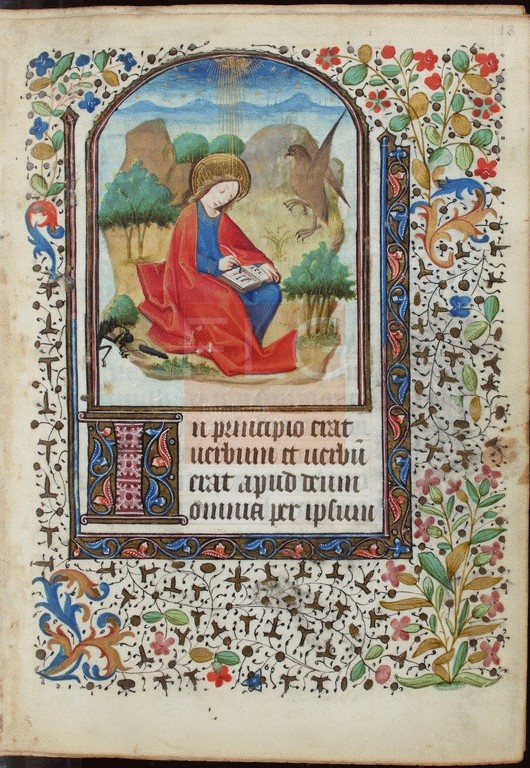 13
In principio erat
uerbum et uerbū
erat apud deum
omnia per ipsum